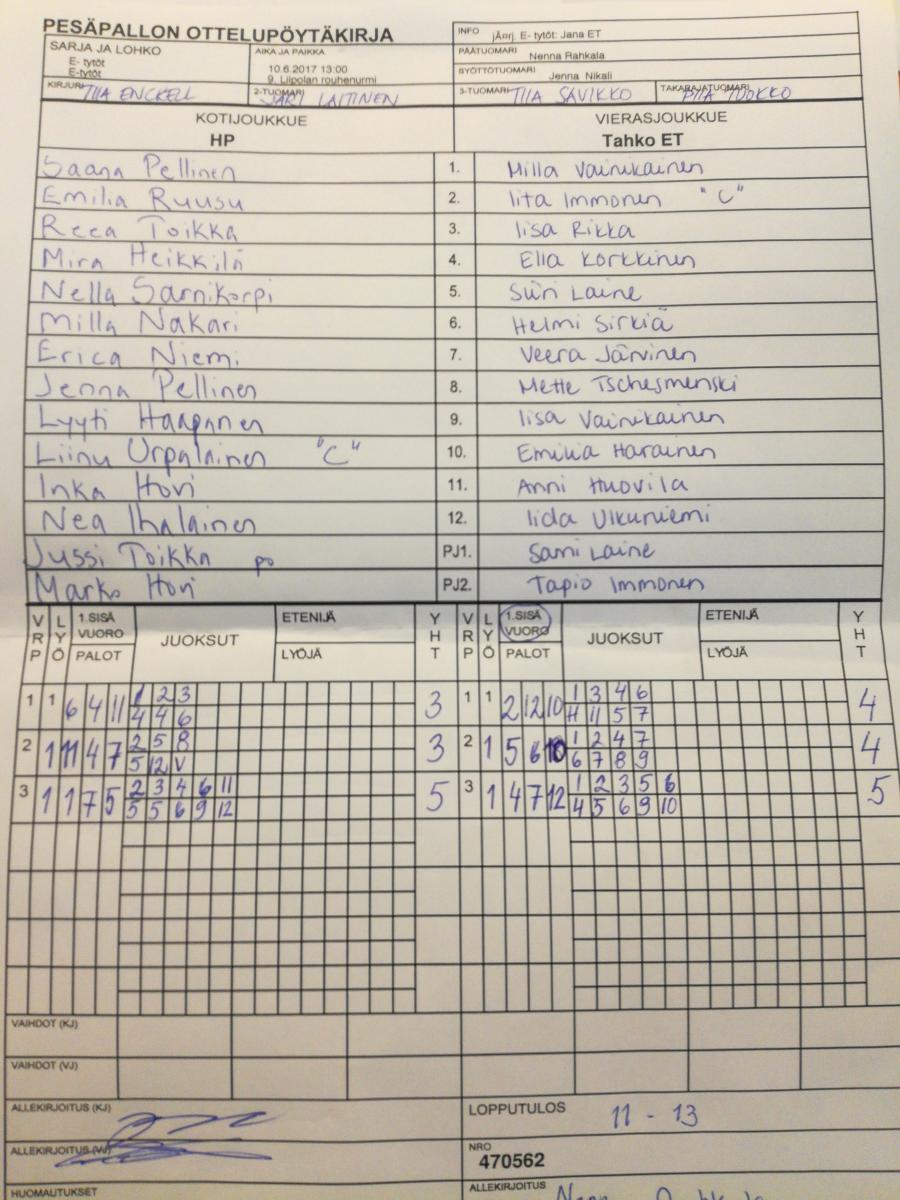 PESÄPALLON OTTELUPÖYTÄKIRJA
INFO jÃ¤rj. E- tytöt: Jana ET
SARJA JA LOHKO
E- tytöt
E-tytöt
AIKA JA PAIKKA
10.6.2017 13:00
9. Liipolan rouhenurmi
PÄÄTUOMARI Nenna Rahkala
SYÖTTÖTUOMARI Jenna Nikali
KIRJURI TIIA ENCKELL
2-TUOMARI JARI LAITINEN
3-TUOMARI TIIA SAVIKKO
TAKARAJATUOMARI
KOTIJOUKKUE
HP
VIERASJOUKKUE
Tahko ET
Saana Pellinen 1. Milla Vainikainen
Emilia Ruusu 2. Iita Immonen "C"
Reea Toikka 3. Iisa Rikka
Mira Heikkilä 4. Ella Korkkinen
Nella Sarnikorpi 5. Siiri Laine
Milla Nakari 6. Helmi Sirkiä
Erica Niemi 7. Veera Järvinen
Jenna Pellinen 8. Mette Tschesmenski
Lyyti Haapanen 9. Iisa Vainikainen
Liinu Urpalainen "C" 10. Emilia Harainen
Inka Hovi 11. Anni Huovila
Nea Ihalainen 12. Iida Ulkuniemi
Jussi Toikka po PJ1. Sami Laine
Marko Hovi PJ2. Tapio Immonen
VRP LYÖ 1.SISÄ VUORO PALOT JUOKSUT ETENIJÄ LYÖJÄ YHT VRP LYÖ 1.SISÄ VUORO PALOT JUOKSUT ETENIJÄ LYÖJÄ YHT
1 1 6 4 11 1 2 3 3 1 1 2 12 10 1 3 4 6 4
4 4 6 H 11 5 7
2 1 11 4 7 2 5 8 3 2 1 5 6 10 1 2 4 7 4
5 12 V 6 7 8 9
3 1 1 7 5 2 3 4 6 11 5 3 1 4 7 12 1 2 3 5 6 5
5 5 6 9 12 4 5 6 9 10
VAIHDOT (KJ)
VAIHDOT (VJ)
ALLEKIRJOITUS (KJ)
LOPPUTULOS 11 - 13
ALLEKIRJOITUS (VJ)
NRO
470562
HUOMAUTUKSET
ALLEKIRJOITUS